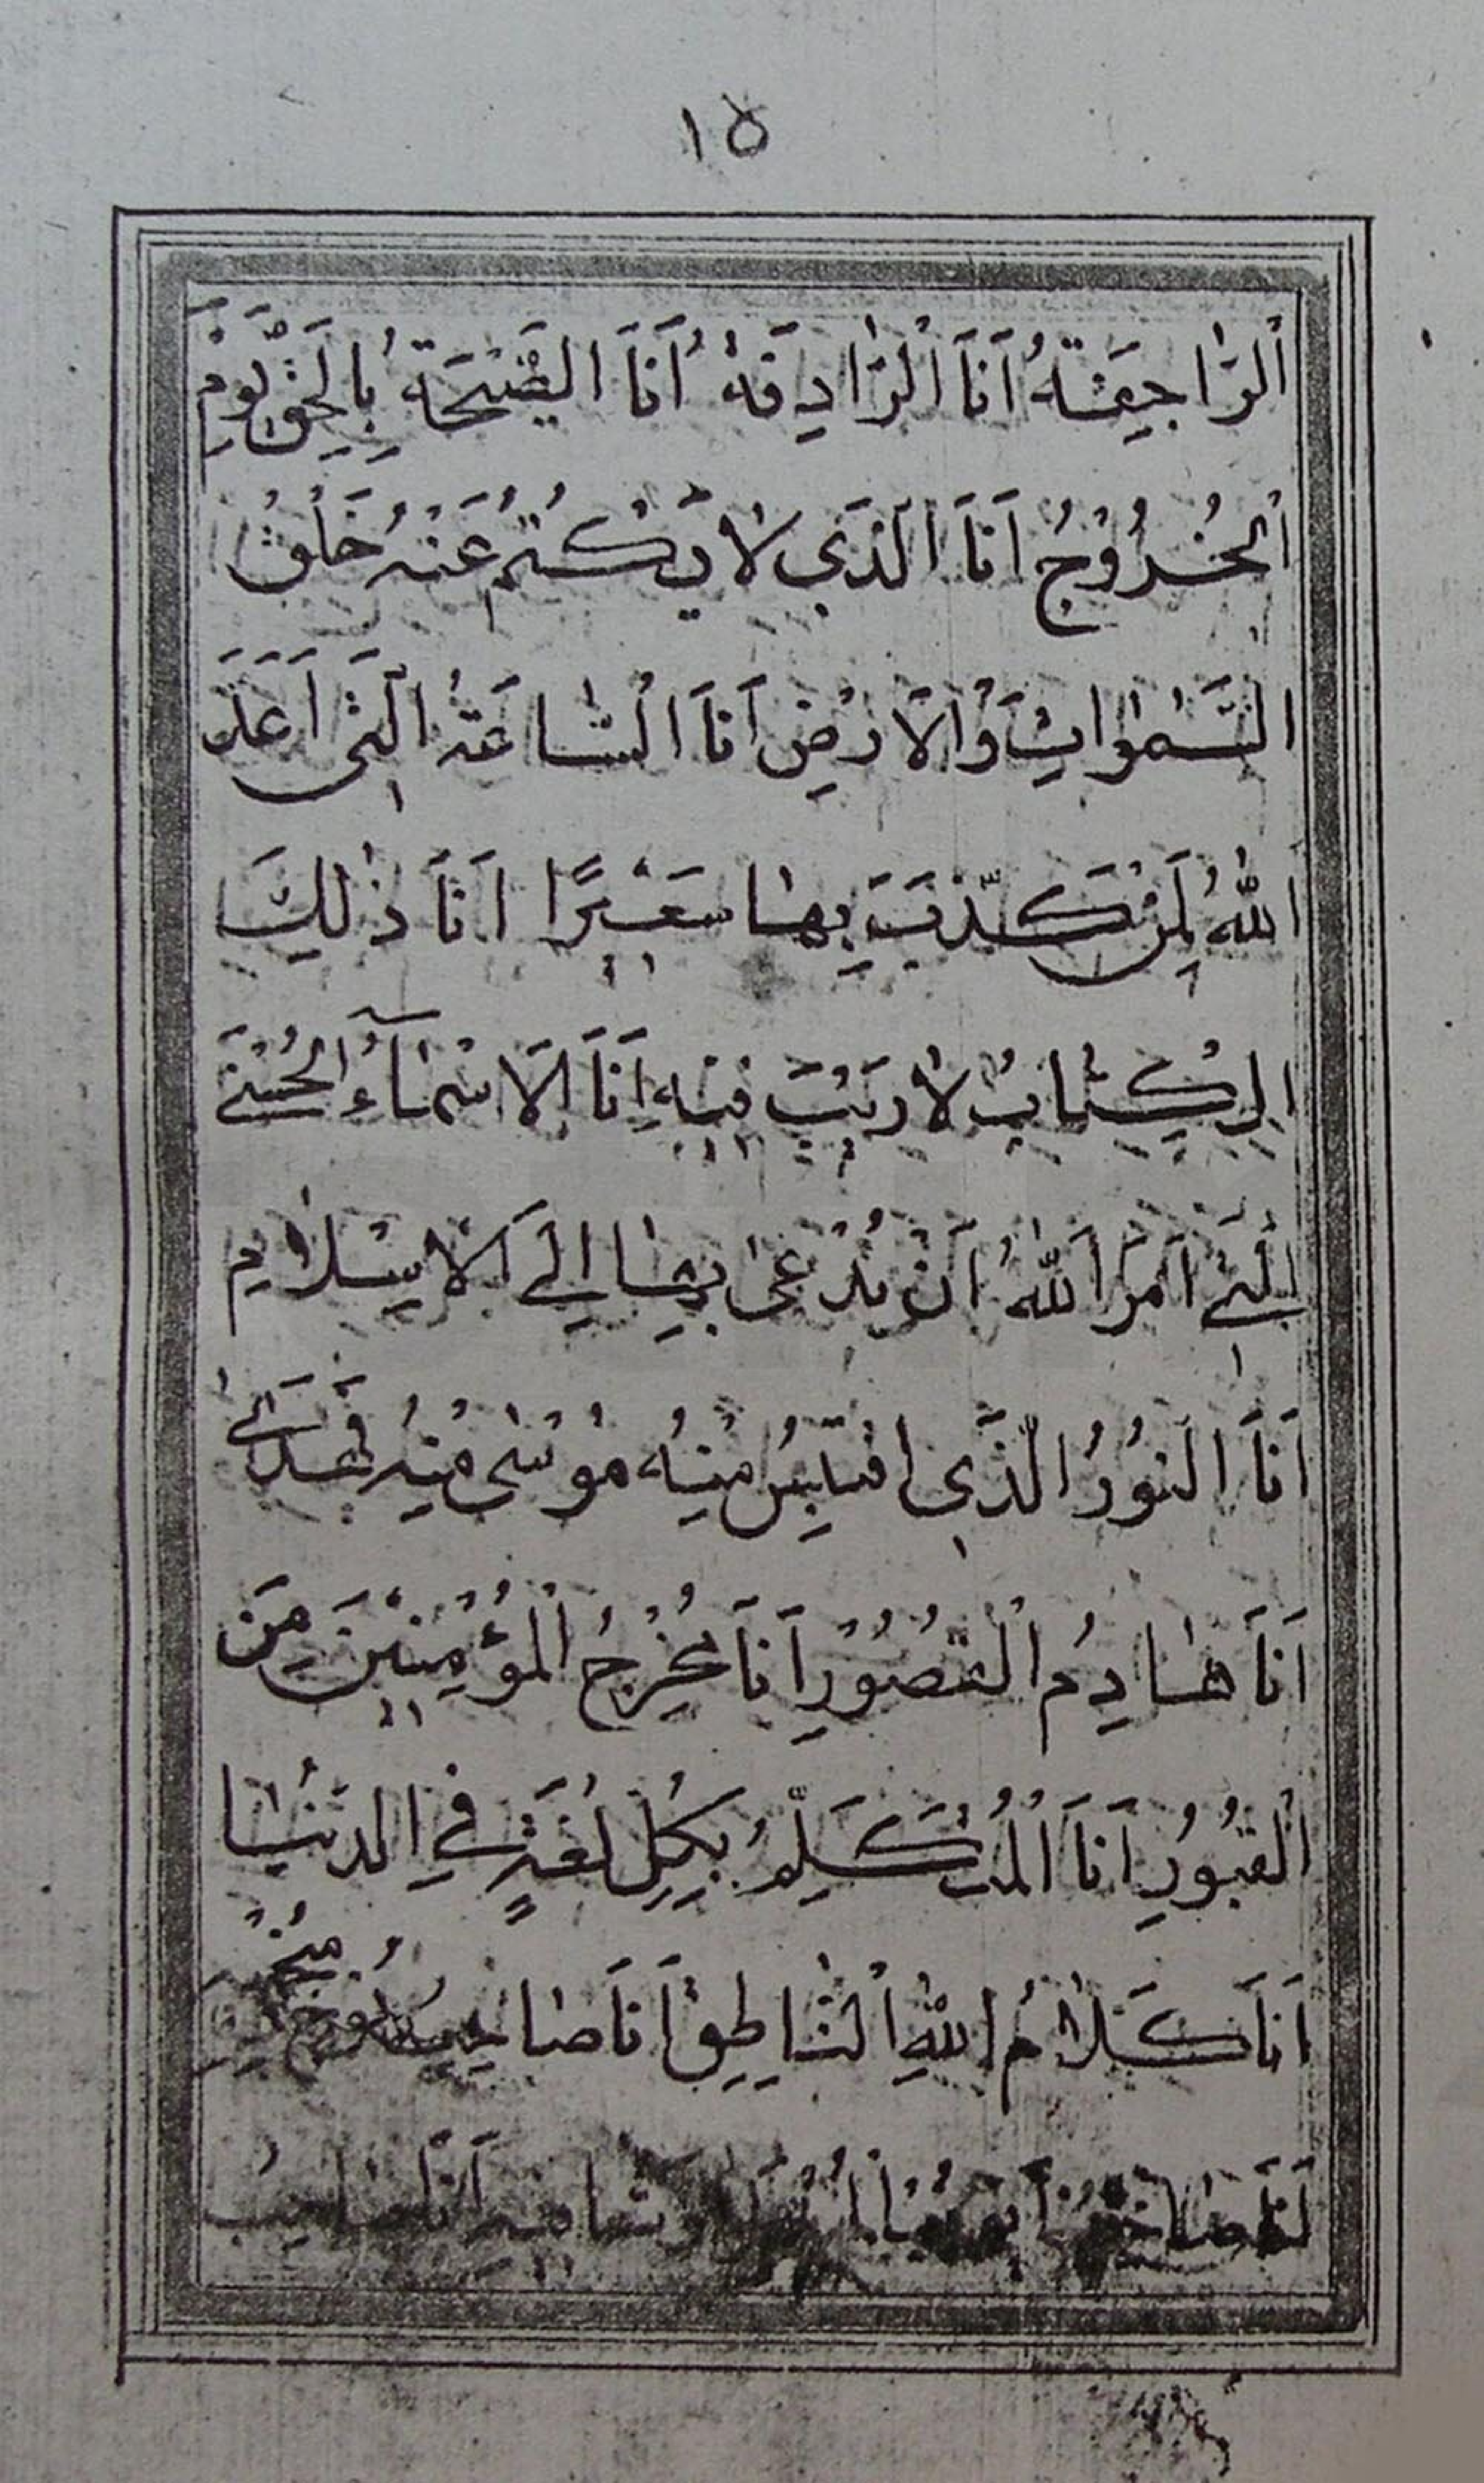 ١٥
اَلرّٰاجِفَةُ اَنَا الْرّٰادِفَةُ اَنَا الصَّيْحَةُ بِالْحَقِّ يَوْمَ
الْخُرُوْجُ اَنَا الَّذِي لٰا يَكْتُمُ عَنْهُ خَلْقُ
السَّمٰوٰاتِ وَالْاَرْضِ اَنَا الْسّٰاعَةُ الَّتِى اَعَدَّ
اللّٰهُ لِمَنْ كَذَّبَ بِهٰا سَعِيْرًا اَنَا ذٰلِكَ
الْكِتٰابُ لٰا رَيْبَ فِيْهِ اَنَا الْاَسْمٰآءُ الْحُسْنٰى
الَّتِى اَمَرَ اللّٰهُ اَنْ يُدْعٰى بِهٰا اِلَى الْاِسْلٰامِ
اَنَا النُّوْرُ الَّذِى اقْتَبَسَ مِنْهُ مُوْسٰى مِنْهُ فَهَدٰى
اَنَا هٰادِمُ الْقُصُوْرِ اَنَا مُخْرِجُ الْمُؤْمِنِيْنَ مِنَ
الْقُبُوْرِ اَنَا الْمُتَكَلِّمُ بِكُلِّ لُغَةٍ فِي الدُّنْيٰا
اَنَا كَلٰامُ اللّٰهِ النّٰاطِقُ اَنَا صٰاحِبُ نُوْحٍ
اَنَا صٰاحِبُ اَيُّوْبَ اَنَا صٰاحِبُ